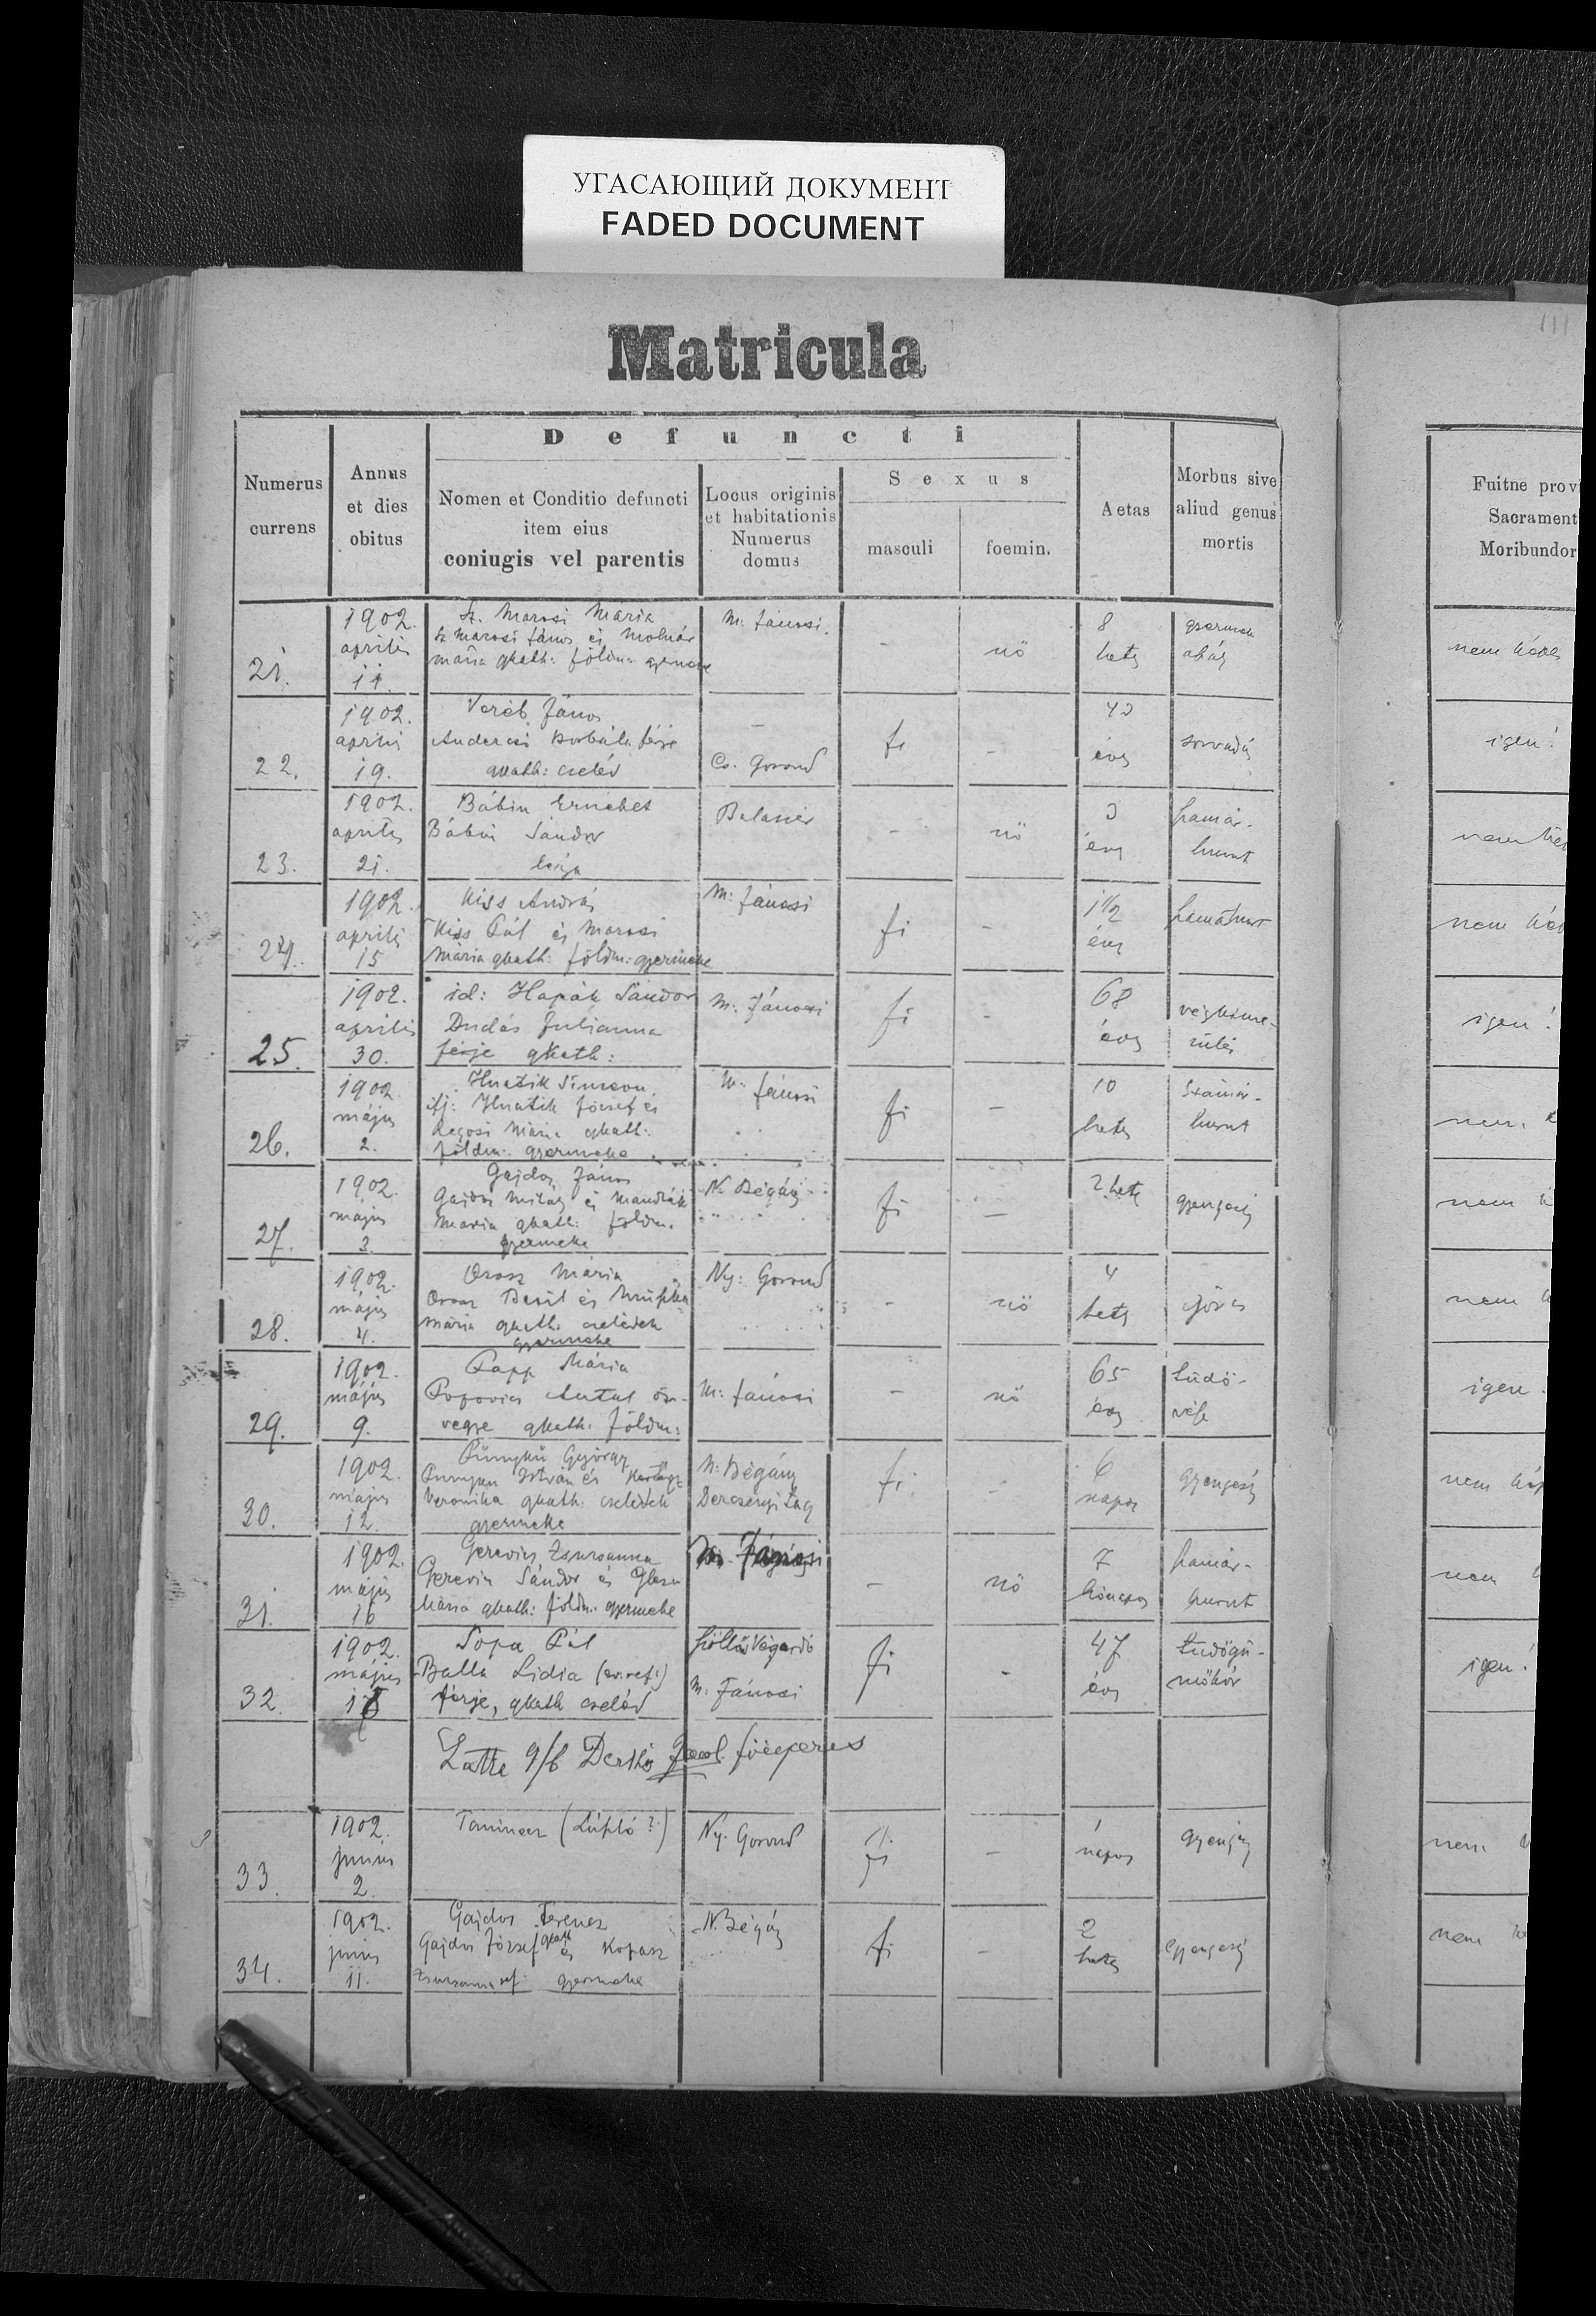 УГАСАЮЩИЙ ДОКУМЕНТ
FADED DOCUMENT
Matricula
Defuncti
Numerus currens
Annus et dies obitus
Nomen et Conditio defuncti item eius coniugis vel parentis
Locus originis et habitationis Numerus domus
Sexus
masculi
foemin.
Aetas
Morbus sive aliud genus mortis
Fuitne prov
Sacrament
Moribundor
21.
1902.
aprilis
11.
Sz. Marosi Mária
Sz Marosi János és Molnár
Mária gkath: földm:
M: Jánosi.
-
nő
8
hetes
nem képes
22.
1902.
aprilis
19.
Veréb János
Andercsi Borbála férje
gkath: cseléd
-
Cs. Gorond
fi
-
40
éves
sorvadás
igen!
23.
1902.
aprilis
21.
Bábin Erzsébet
Bábin Sándor
leánya
Balazsér
-
nő
3
éves
hamár-
hurut
nem
24.
1902.
aprilis
15
Kiss András
Kiss Pál és Marosi
Mária gkath: földm: gyermeke
M: Jánosi
fi
-
1 1/2
éves
nem
25.
1902.
aprilis
30.
id: Hapák Sándor
Dudás Julianna
férje gkath:
M: Jánosi
fi
-
68
éves
végkime-
rülés
igen!
26.
1902.
május
2.
Hnatik Simeon
ifj: Hnatik József és
Mária gkath:
földm: gyermeke
M: Jánosi
fi
-
10
hetes
hurut
nem
27.
1902.
május
3.
Gajdos János
Gajdos Mihály és
Maria gkath: földm.
gyermeke
N. Bégány
fi
-
2 hetes
gyengeség
nem
28.
1902.
május
4.
Orosz Mária
Orosz Bazil és
Mária gkath. cselédek
gyermeke
Ny: Gorond
-
nő
4
hetes
nem
29.
1902.
május
9.
Papp Mária
Popovics Antal öz-
vegye gkath. földm:
M: Jánosi
-
nő
65
éves
tüdő-
vész
igen.
30.
1902.
május
12.
Punykü György
Punyku István és
Veronika gkath: cselédek
gyermeke
N: Bégány
Dercsényi tag
fi
-
6
napos
gyengeség
nem
31.
1902.
május
16
Gerevics Zsuzsanna
Gerevics Sándor és
Mária gkath: földm: gyermeke
M. Jánosi
-
nő
7
hónapos
hamár-
hurut
nem
32.
1902.
május
Sopa Pál
Balla Lidia (ev. ref:)
férje, gkath cseléd
Szőllős Végardó
M. Jánosi
fi
-
47
éves
tüdőgü-
mőkór
igen!
Látta 9/6 főesperes
33.
1902.
junius
2.
Ny. Gorond
fi
-
1
napos
gyengeség
nem
34.
1902.
junius
11.
Gajdos Ferencz
Gajdos József gkath és Kopasz
Zsuzsanna ref: gyermeke
N. Bégány
fi
-
2
hetes
gyengeség
nem